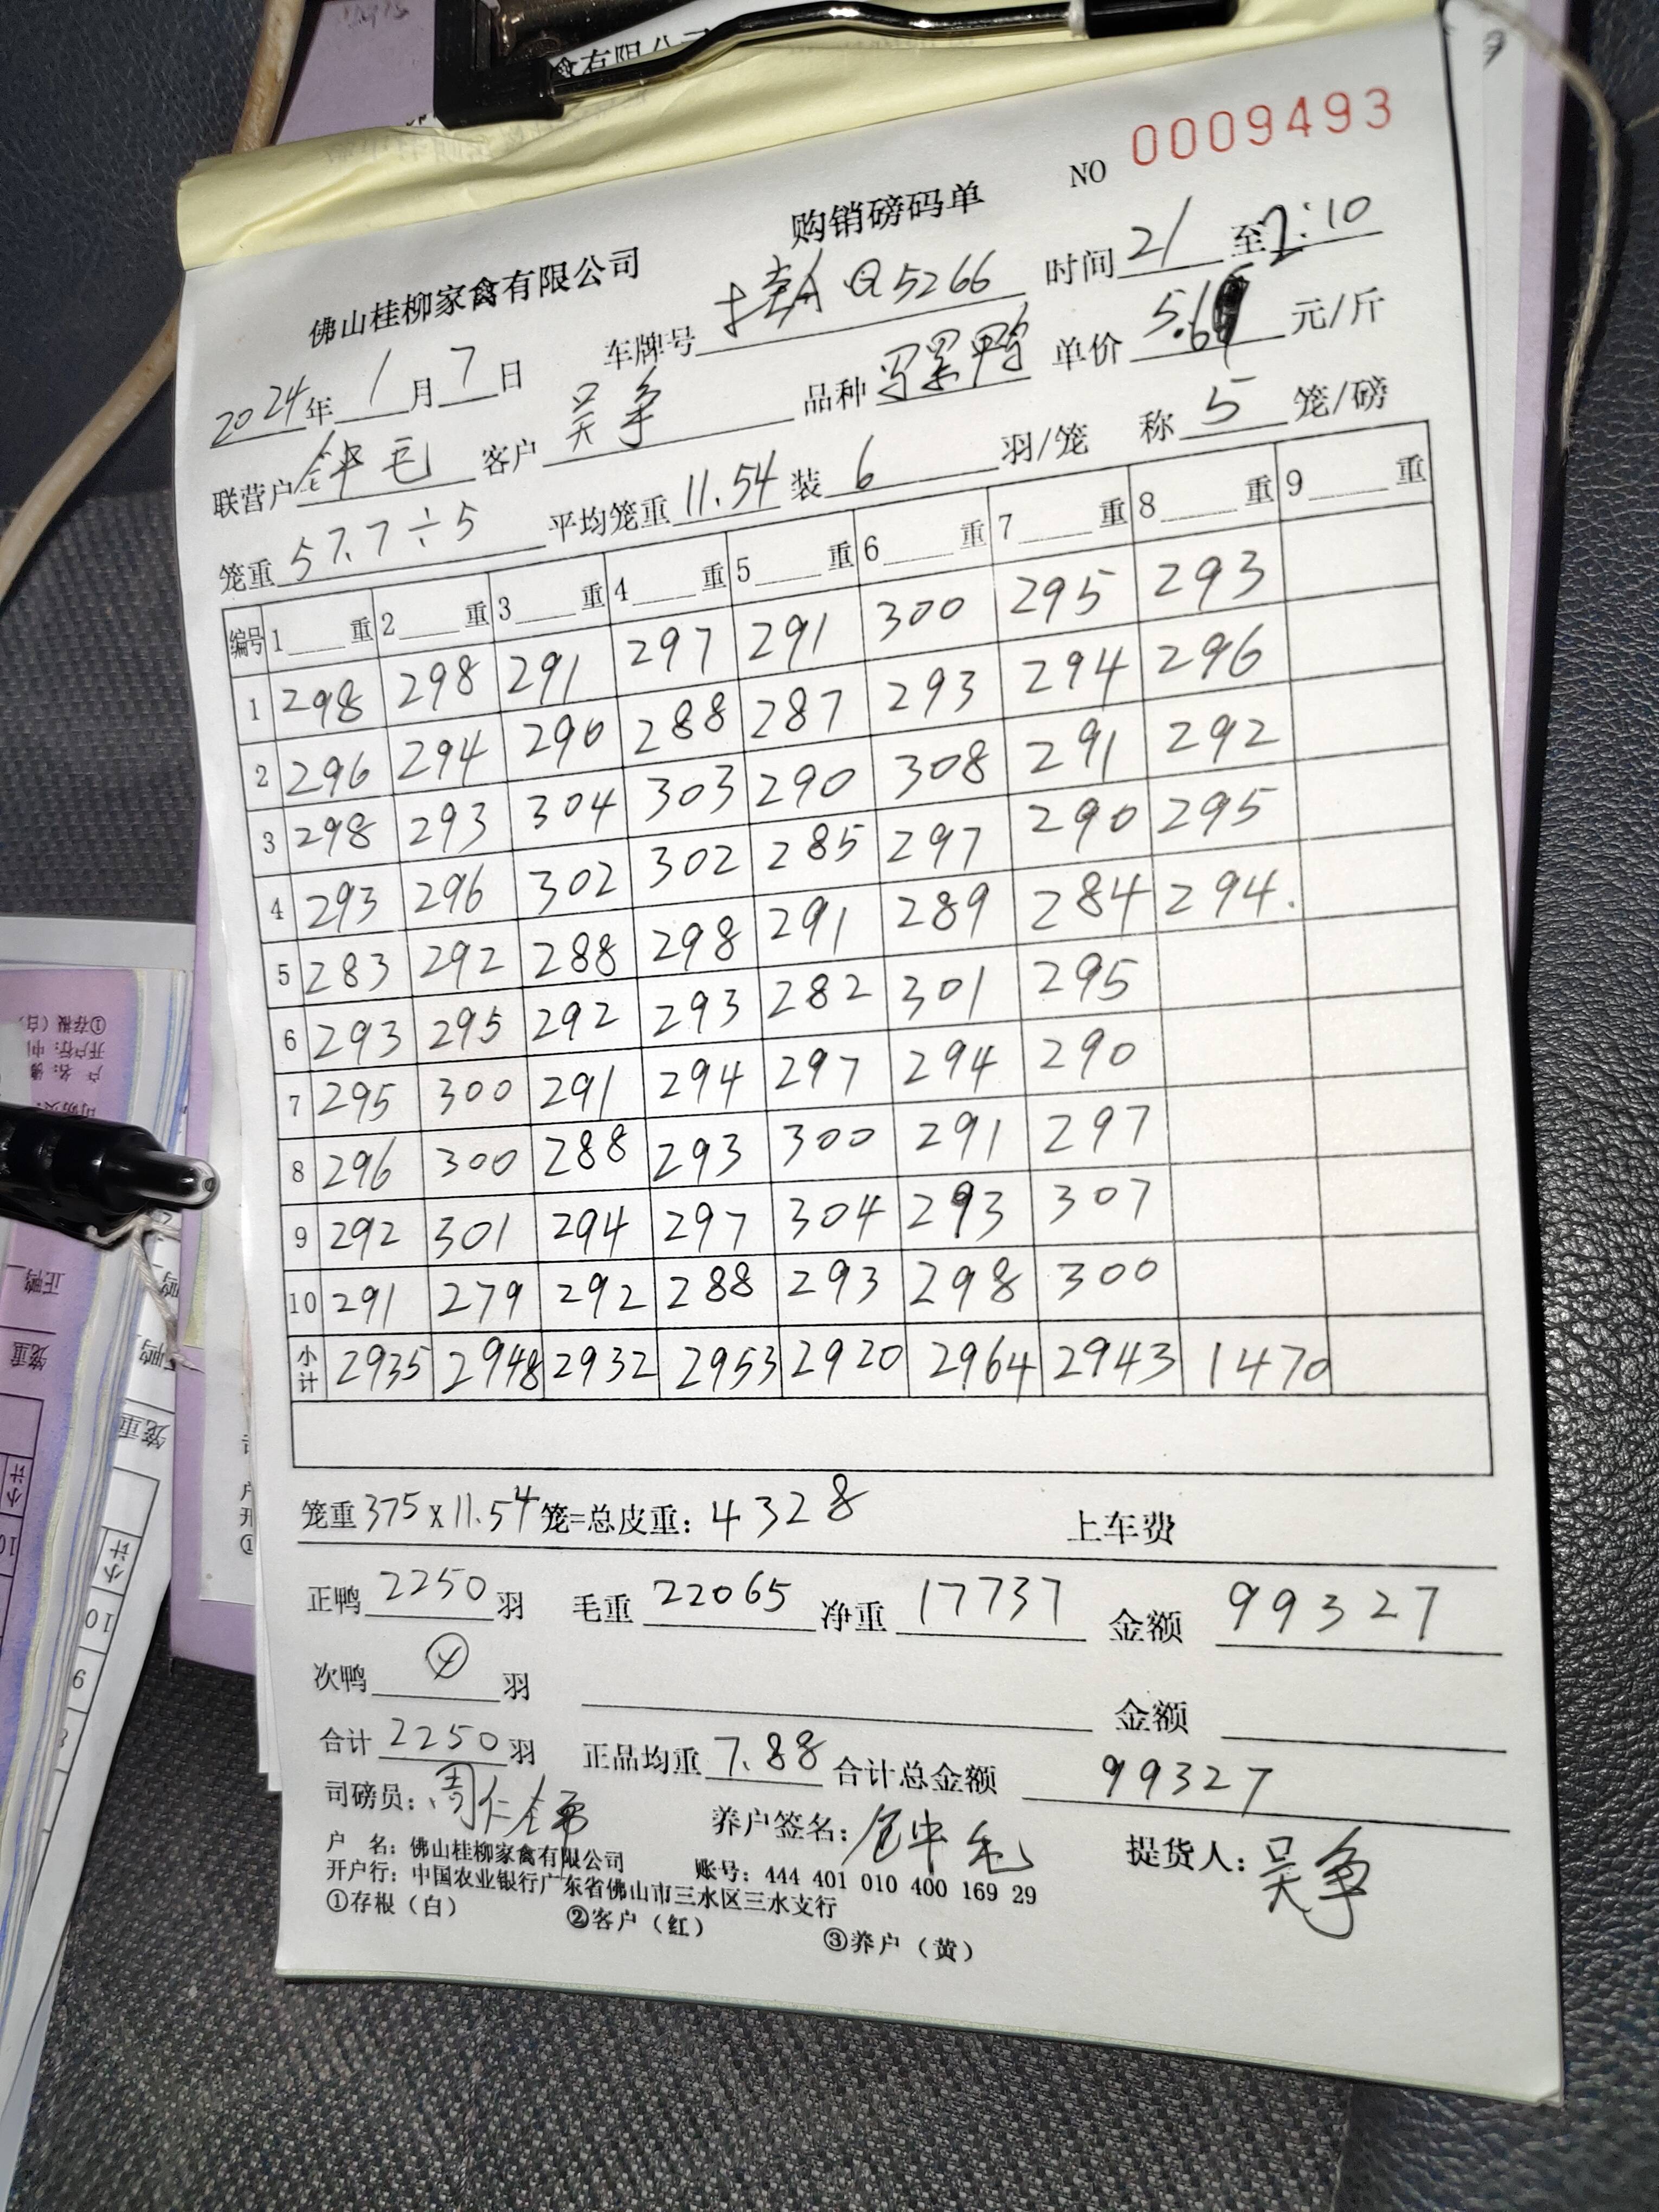 NO 0009493
购销磅码单
佛山桂柳家禽有限公司
2024年 1 月 7 日 车牌号 Q5266 时间 21 至 2:10
联营户 钟毛 客户 吴争 品种 骡鸭 单价 5.6 元/斤
笼重 57.7÷5 平均笼重 11.54 装 6 羽/笼 称 5 笼/磅
编号 1 重 2 重 3 重 4 重 5 重 6 重 7 重 8 重 9 重
1 298 298 291 297 291 300 295 293
2 296 294 290 288 287 293 294 296
3 298 293 304 303 290 308 291 292
4 293 296 302 302 285 297 290 295
5 283 292 288 298 291 289 284 294.
6 293 295 292 293 282 301 295
7 295 300 291 294 297 294 290
8 296 300 288 293 300 291 297
9 292 301 294 297 304 293 307
10 291 279 292 288 293 298 300
小计 2935 2948 2932 2953 2920 2964 2943 1470
笼重 375 x 11.54 笼=总皮重: 4328 上车费
正鸭 2250 羽 毛重 22065 净重 17737 金额 99327
次鸭 羽 金额
合计 2250 羽 正品均重 7.88 合计总金额 99327
司磅员: 周仁 养户签名: 钟毛 提货人: 吴争
户 名: 佛山桂柳家禽有限公司 账号: 444 401 010 400 169 29
开户行: 中国农业银行广东省佛山市三水区三水支行
①存根（白） ②客户（红） ③养户（黄）